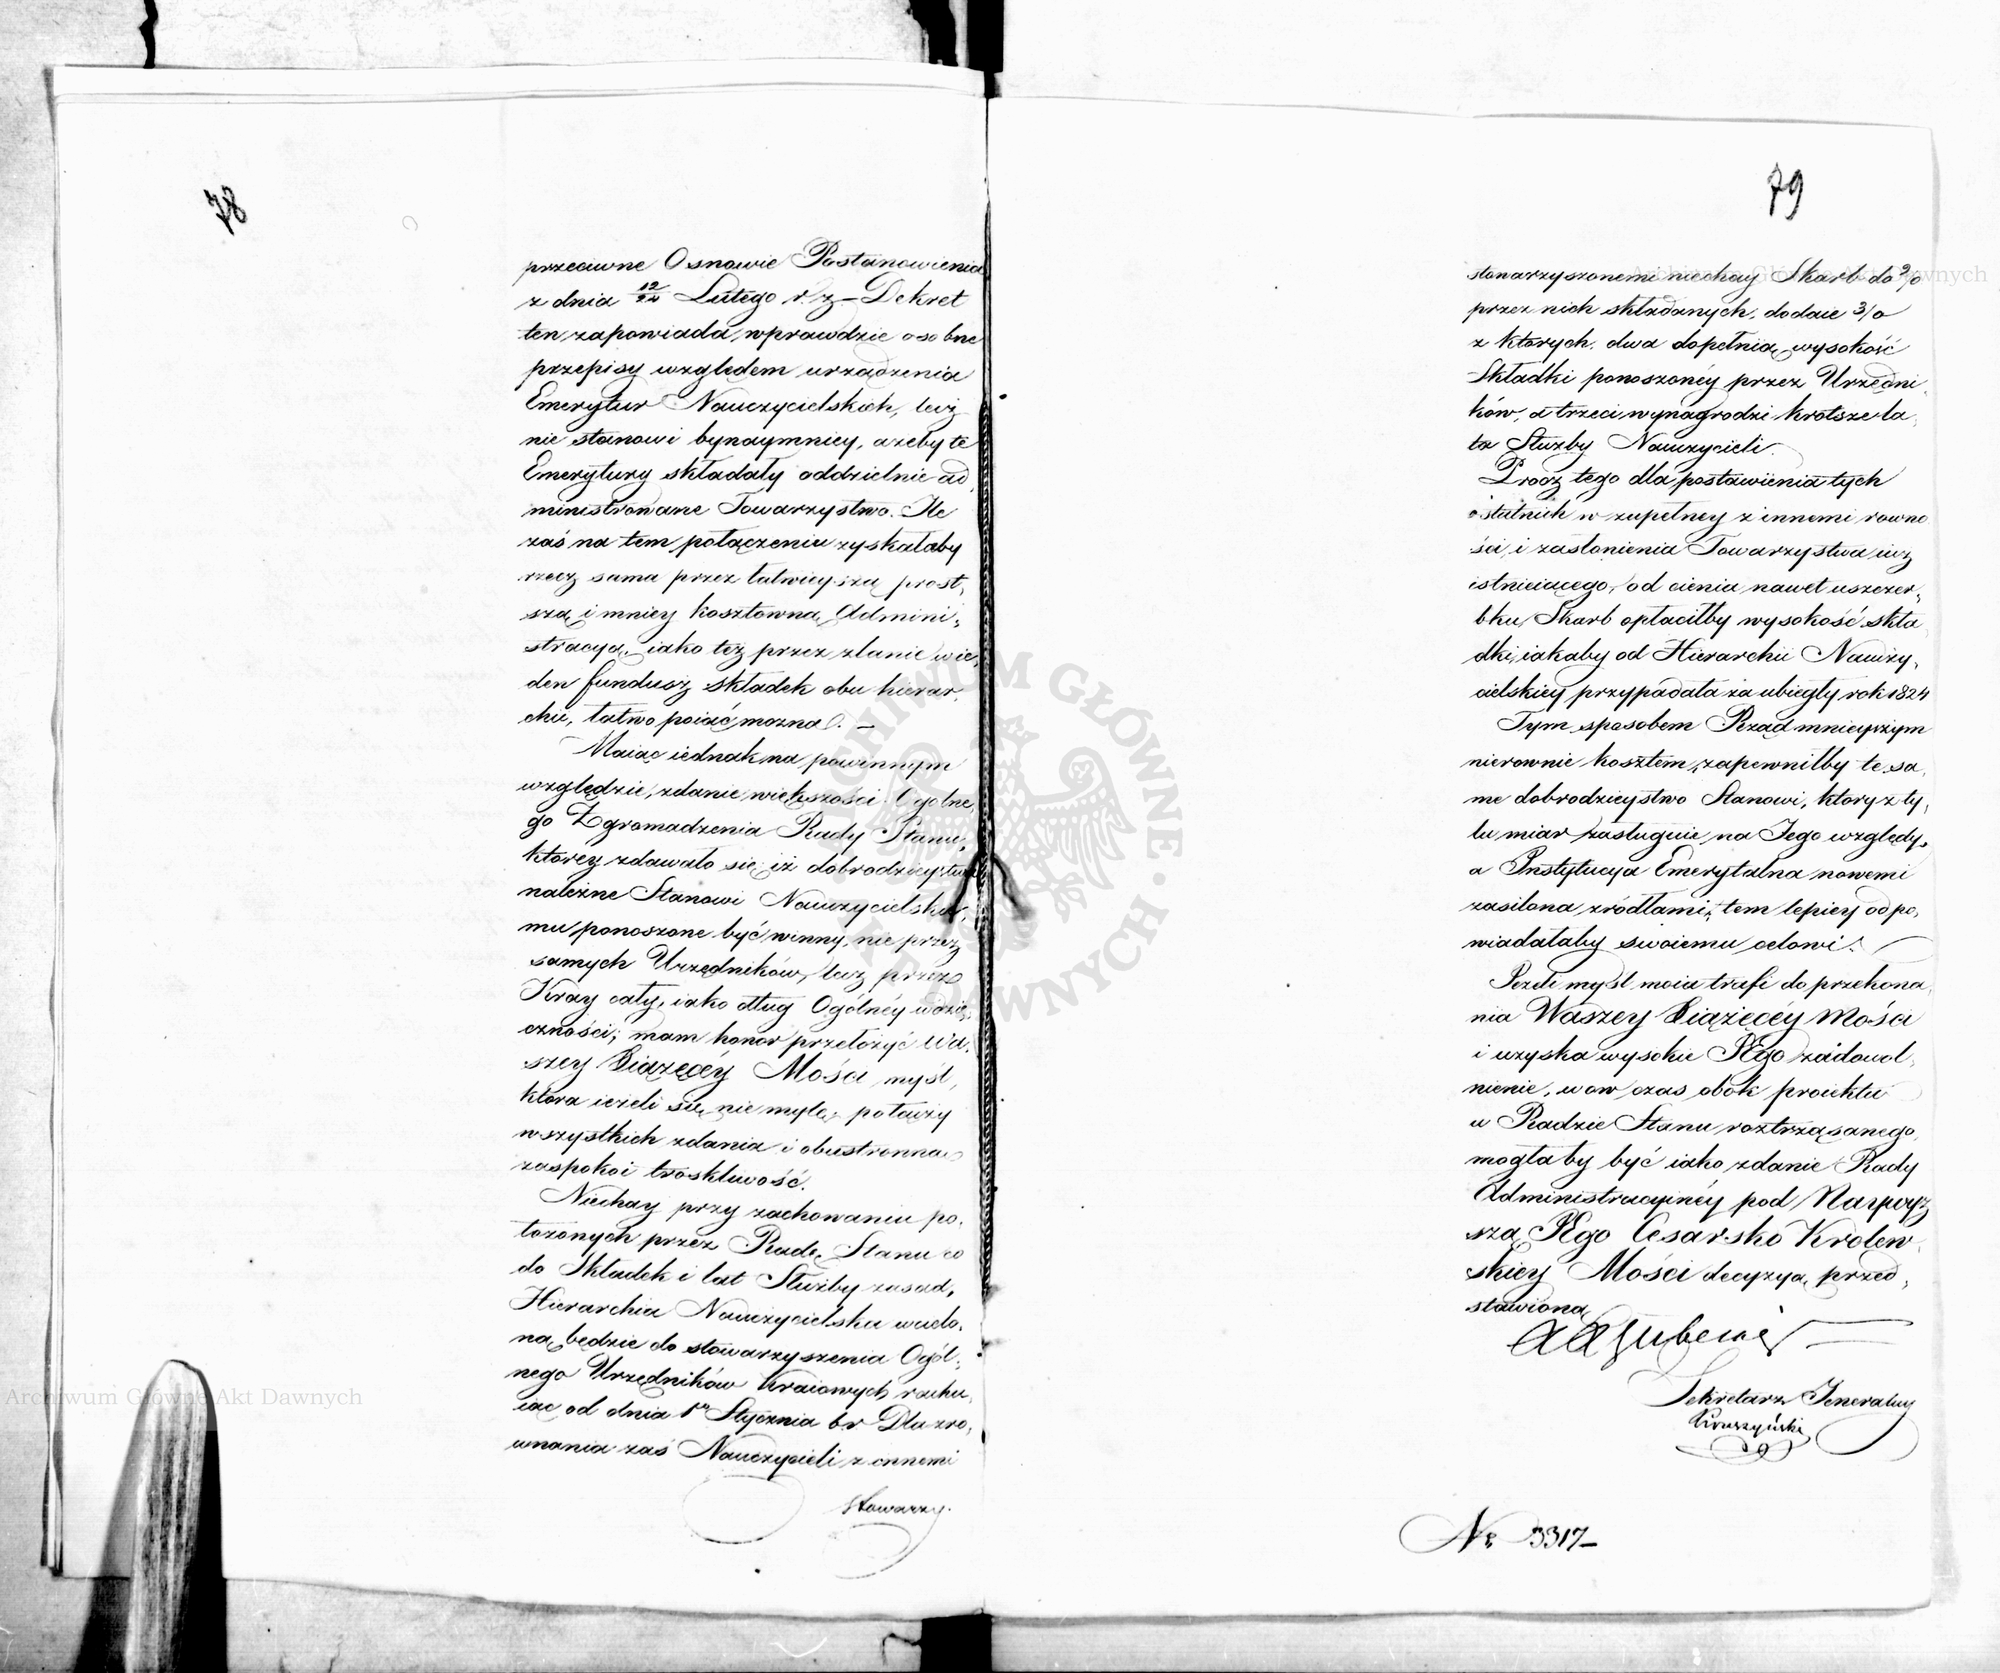 78
przeciwne Osnowie Postanowienia
z dnia 12/24 Lutego r. z – Dekret
ten zapowiada, wprawdzie osobne
przepisy względem urządzenia
Emerytur Nauczycielskich, lecz
nie stanowi bynaymniey, ażeby te
Emerytury składały oddzielnie ad,
ministrowane Towarzystwo. Ile
zaś na tem połączeniu zyskałaby
rzecz sama przez łatwieyszą prost,
szą i mniey kosztowną Admini,
stracyą, iako też przez zlanie w ie,
den fundusz składek obu hierar,
chii, łatwo poiąć można. –
Maiąc iednak na powinnym
względzie, zdanie większości Ogólne,
go Zgromadzenia Rady Stanu,
którey zdawało się, iż dobrodzieystwa
należne Stanowi Nauczycielskie,
mu ponoszone być winny, nie przez
samych Urzędników, lecz przez
Kray cały, iako dług Ogólnéy wdzię,
czności; mam honor przełożyć Wa,
szey Xiążęcéy Mości myśl,
która ieżeli się nie mylę, połączy
wszystkich zdania i obustronną
zaspokoi troskliwość.
Niechay przy zachowaniu po,
łożonych przez Radę Stanu co
do Składek i lat Służby zasad,
Hierarchia Nauczycielska wcielo,
ną będzie do stowarzyszenia Ogól,
nego Urzędników Kraiowych rachu,
iąc od dnia 1go Stycznia b.r Dla zró,
wnania zaś Nauczycieli z innemi
stowarzy.
79
stowarzyszonemi niechay Skarb do %
przez nich składanych, dodaie 3/o
z których, dwa dopełnią wysokość
Składki ponoszonéy przez Urzędni,
ków, a trzeci wynagrodzi krótsze la,
ta Służby Nauczycieli.
Prócz tego dla postawienia tych
ostatnich w zupełney z innemi równo
ści, i zasłonienia Towarzystwa iuż
istnieiącego, od cienia nawet uszczer,
bku, Skarb opłaciłby wysokość skła
dki, iakaby od Hierarchii Nauczy,
cielskiey przypadała za ubiegły rok 1824
Tym sposobem Rząd mnieyszym
nierównie kosztem, zapewniłby te sa,
me dobrodzieystwo Stanowi, który z ty,
lu miar zasługuie na Jego względy,
a Instytucya Emerytalna nowemi
zasilona źródłami, tem lepiey odpo,
wiadałaby swoiemu celowi.
Jeżeli myśl moia trafi do przekona,
nia Waszey Xiążęcéy Mości
i uzyska wysokie JEgo zadowol,
nienie, wówczas obok proiektu
w Radzie Stanu roztrząsanego,
mogłaby być iako zdanie Rady
Administracyinéy pod Naywyż
szą JEgo Cesarsko Królew,
skiey Mości decyzyą przed,
stawioną
Sekretarz Jeneralny
Kruszyński
No 3317–
Archiwum Główne Akt Dawnych
Archiwum Główne Akt Dawnych
ARCHIWUM GŁÓWNE AKT DAWNYCH